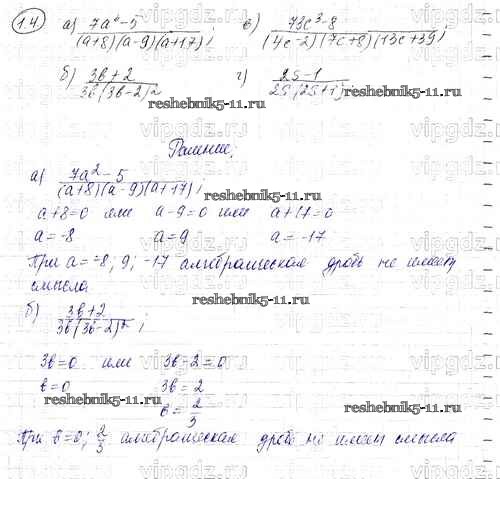 1.4 а) (7a² - 5)/((a+8)(a-9)(a+17)); в) (73c³-8)/((4c-2)(7c+8)(13c+39));
б) (3b+2)/(3b(3b-2)²) г) (2s-1)/(2s(2s+1));
reshebnik5-11.ru
reshebnik5-11.ru
Решение:
а) (7a² - 5)/((a+8)(a-9)(a+17));
a+8=0 или a-9=0 или a+17=0
a=-8 a=9 a=-17
При a=-8; 9; -17 алгебраическая дробь не имеет
смысла
reshebnik5-11.ru
б) (3b+2)/(3b(3b-2)²);
3b=0 или 3b-2=0
b=0 3b=2
reshebnik5-11.ru
b=2/3
reshebnik5-11.ru
При b=0; 2/3 алгебраическая дробь не имеет смысла
vipgdz.ru